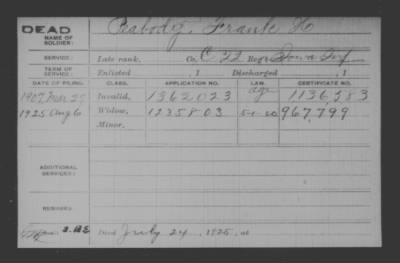 DEAD
NAME OF SOLDIER:
Peabody, Frank H
SERVICE:
Late rank, Co. C 22 Reg't Iowa Inf
TERM OF SERVICE:
Enlisted , 1 Discharged , 1
DATE OF FILING. CLASS. APPLICATION NO. LAW. CERTIFICATE NO.
1907 Invalid, 1362023 age 1136383
1925 Aug 6 Widow, 1235803 5-1-20 967,799
Minor,
ADDITIONAL SERVICES:
REMARKS:
Died July 24, 1925, at